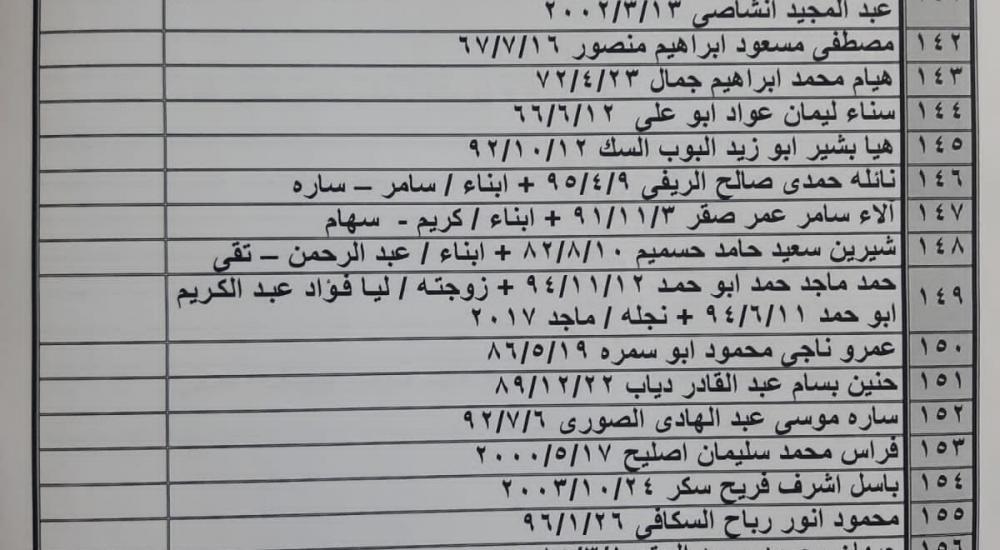 عبد المجيد انشاصى ٢٠٠٢/٣/١٣
١٤٢ مصطفى مسعود ابراهيم منصور ٦٧/٧/١٦
١٤٣ هيام محمد ابراهيم جمال ٧٢/٤/٢٣
١٤٤ سناء ليمان عواد ابو على ٦٦/٦/١٢
١٤٥ هيا بشير ابو زيد البوب السك ٩٢/١٠/١٢
١٤٦ نائله حمدى صالح الريفى ٩٥/٤/٩ + ابناء / سامر – ساره
١٤٧ آلاء سامر عمر صقر ٩١/١١/٣ + ابناء / كريم - سهام
١٤٨ شيرين سعيد حامد حسميم ٨٢/٨/١٠ + ابناء / عبد الرحمن – تقى
١٤٩ حمد ماجد حمد ابو حمد ٩٤/١١/١٢ + زوجته / ليا فؤاد عبد الكريم
ابو حمد ٩٤/٦/١١ + نجله / ماجد ٢٠١٧
١٥٠ عمرو ناجى محمود ابو سمره ٨٦/٥/١٩
١٥١ حنين بسام عبد القادر دياب ٨٩/١٢/٢٢
١٥٢ ساره موسى عبد الهادى الصورى ٩٢/٧/٦
١٥٣ فراس محمد سليمان اصليح ٢٠٠٠/٥/١٧
١٥٤ باسل اشرف فريح سكر ٢٠٠٣/١٠/٢٤
١٥٥ محمود انور رباح السكافى ٩٦/١/٢٦
١٥٦